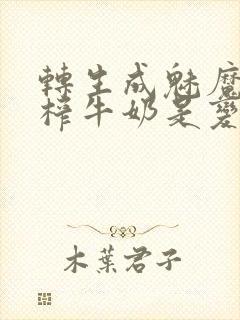 轉生成魅魔
榨牛奶是變
木葉君子